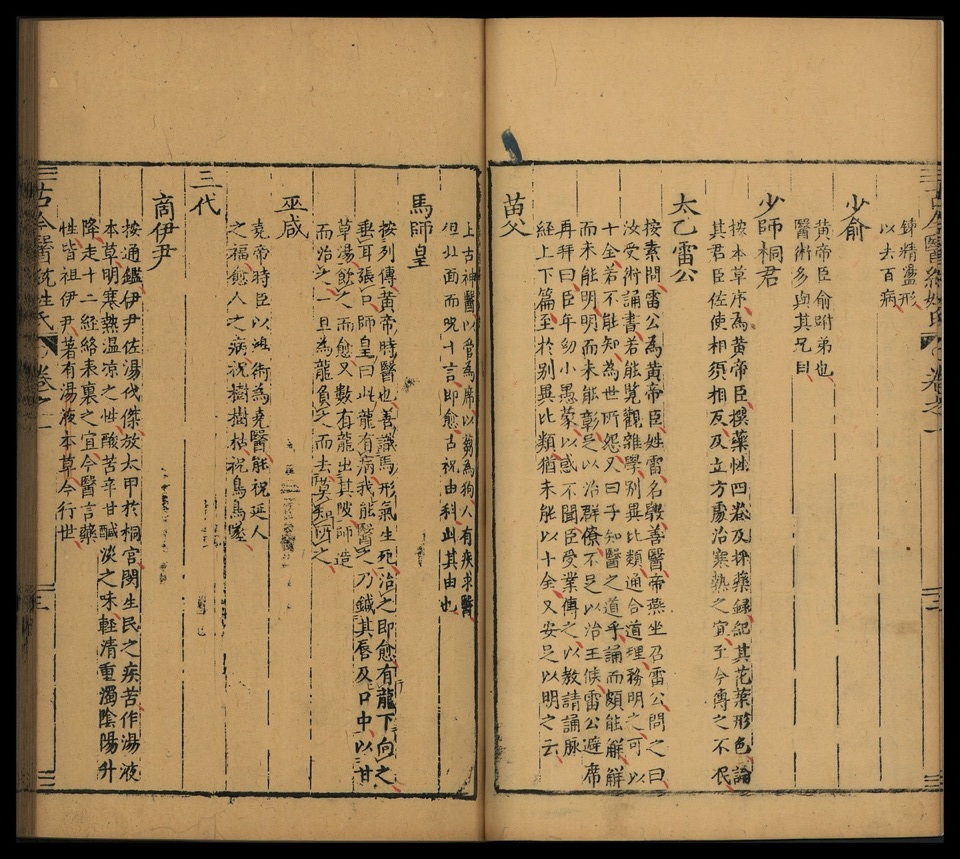 鍊精盪形
以去百病
少俞
黃帝臣俞跗弟也
醫術多與其兄同
少師桐君
按本草序為黃帝臣撰藥性四卷及採藥録紀其花葉形色論
其君臣佐使相須相反及立方處治寒熱之宜至今傳之不泯
太乙雷公
按素問雷公為黃帝臣姓雷名斆善醫帝燕坐召雷公問之曰
汝受術誦書若能覧觀雜學别異比類通合道理務明之可以
十全若不能知為世所怨又曰子知醫之道乎誦而頗能解解
而未能明明而未能彰足以治群僚不足以治王侯雷公避席
再拜曰臣年幼小愚蒙以惑不聞臣受業傳之以教請誦脉
經上下篇至於别異比類猶未能以十全又安足以明之云
苗父
上古神醫以管為席以蒭為狗人有疾求醫
但北面而呪十言即愈古祝由科此其由也
馬師皇
按列傳黃帝時醫也善識馬形氣生死治之即愈有龍下向之
垂耳張口師皇曰此龍有病我能醫之乃鍼其唇及口中以甘
草湯飲之而愈又數有龍出其陂師造
而治之一旦為龍負之而去莫知所之
巫咸
堯帝時臣以鴻術為堯醫能祝延人
之福愈人之病祝樹樹枯祝鳥鳥墜
三代
商伊尹
按通鑑伊尹佐湯伐傑放太甲於桐宫閔生民之疾苦作湯液
本草明寒熱温凉之性酸苦辛甘鹹淡之味輕清重濁陰陽升
降走十二經絡表裏之宜今醫言藥
性皆祖伊尹著有湯液本草今行世
古今醫統姓氏
卷之一
三